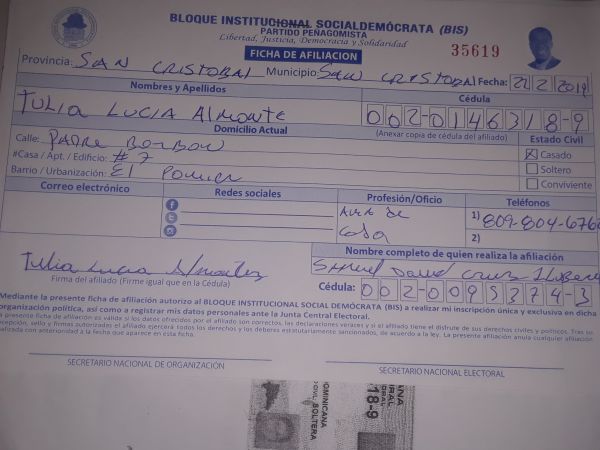 BLOQUE INSTITUCIONAL SOCIALDEMÓCRATA (BIS)
PARTIDO PEÑAGOMISTA
Libertad, Justicia, Democracia y Solidaridad
FICHA DE AFILIACION
35619
Provincia: SAN CRISTOBAL Municipio: SAN CRISTOBAL Fecha: 22 2 2019
Nombres y Apellidos
Cédula
TULIA LUCIA AlMONTE
002-0146318-9
Domicilio Actual
(Anexar copia de cédula del afiliado)
Estado Civil
Calle: PADRE BORBON
Casado
#Casa / Apt. / Edificio: # 7
Soltero
Barrio / Urbanización: El Pomier
Conviviente
Correo electrónico
Redes sociales
Profesión/Oficio
Teléfonos
AMA DE
CASA
1) 809-804-676
2)
Tulia Lucia Almonte
Firma del afiliado (Firme igual que en la Cédula)
Nombre completo de quien realiza la afiliación
Samuel David Cruz
Cédula: 002-0095374-3
Mediante la presente ficha de afiliación autorizo al BLOQUE INSTITUCIONAL SOCIAL DEMÓCRATA (BIS) a realizar mi inscripción única y exclusiva en dicha
organización política, así como a registrar mis datos personales ante la Junta Central Electoral.
a presente ficha de afiliación es válida si los datos ofrecidos por el afiliado son correctos, las declaraciones veraces y si el afiliado tiene el disfrute de sus derechos civiles y políticos. Tras su
recepción, sello y firmas autorizadas el afiliado ejercerá todos los derechos y los deberes estatutariamente sancionados, de acuerdo a la ley. La presente afiliación anula cualquier afiliación
realizada con anterioridad a la fecha que aparece en esta ficha.
SECRETARIO NACIONAL DE ORGANIZACIÓN
SECRETARIO NACIONAL ELECTORAL
DOMINICANA
CIVIL SOLTERA
ANA
RAL
18-9